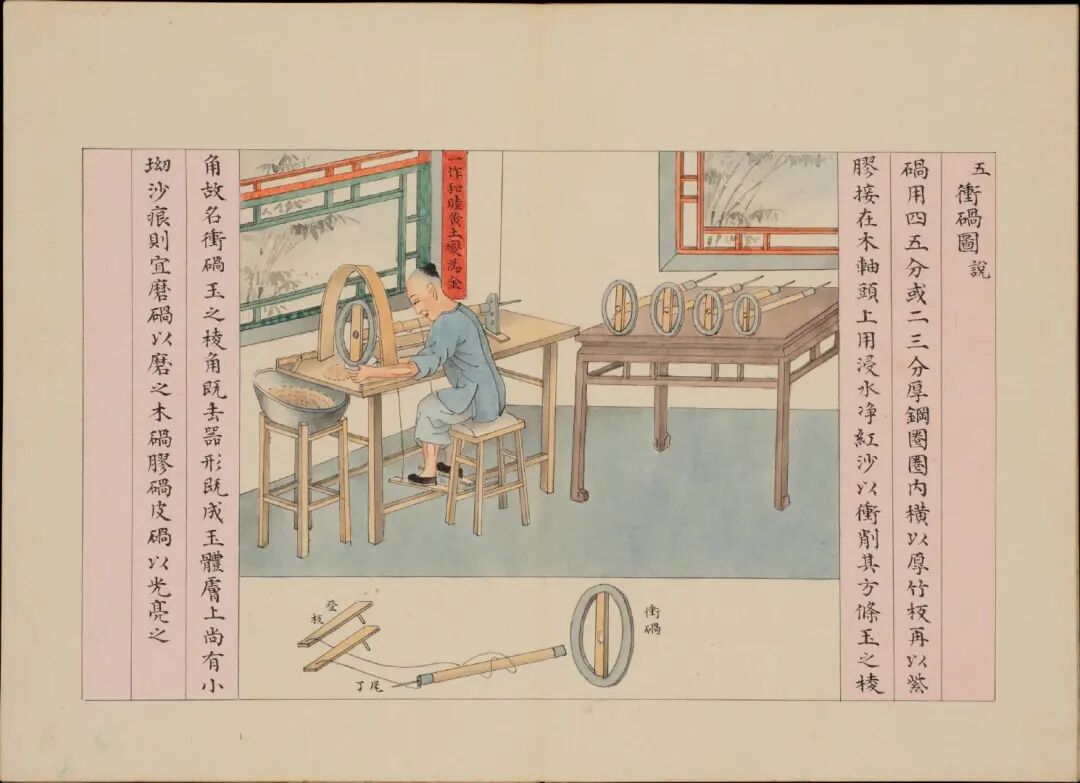 五 衝碢圖 說
碢用四五分或二三分厚鋼圈圈内橫以厚竹板再以紫
膠接在木軸頭上用浸水净紅沙以衝削其方條玉之棱
一作和睦黃土變為金
衝碢
登板
尾丁
角故名衝碢玉之棱角既去器形既成玉體膚上尚有小
坳沙痕則宜磨碢以磨之木碢膠碢皮碢以光亮之